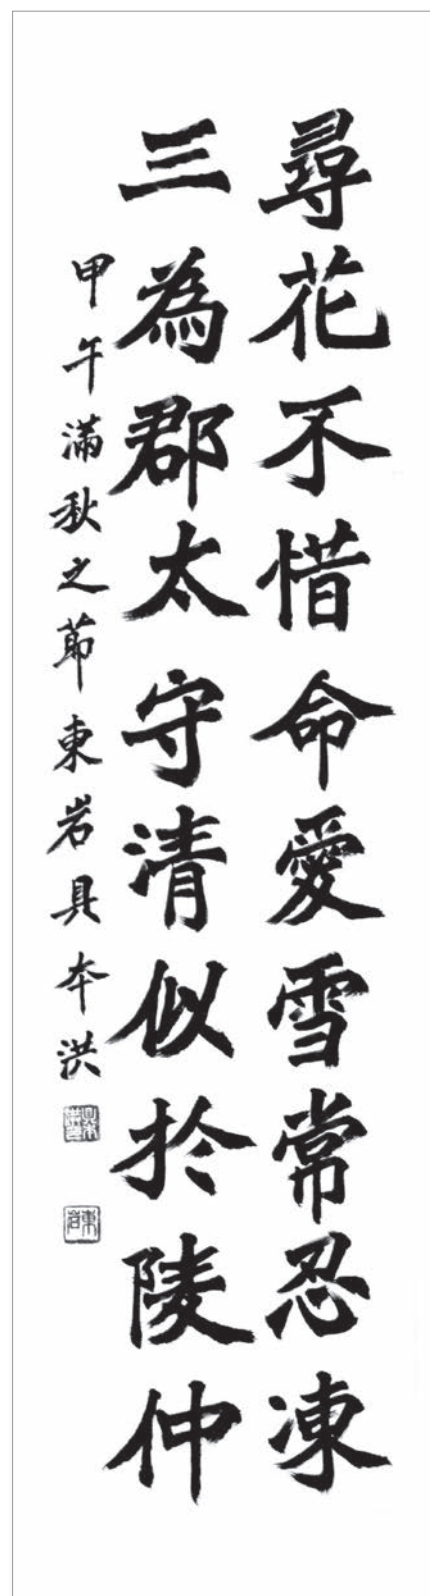 尋花不惜命愛雪常忍凍
三為郡太守清似於陵仲
甲午滿秋之節東岩具本洪